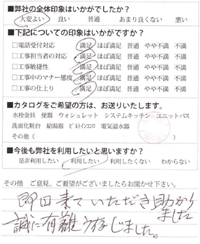 ■弊社の全体印象はいかがでしたか?
大変よい 良い 普通 あまり良くない 悪い
■下記についての印象はいかがですか?
□電話受付対応 満足 ほぼ満足 普通 やや不満 不満
□工事担当者の対応 満足 ほぼ満足 普通 やや不満 不満
□工事敏捷性 満足 ほぼ満足 普通 やや不満 不満
□工事中のマナー態度 満足 ほぼ満足 普通 やや不満 不満
□工事の仕上り 満足 ほぼ満足 普通 やや不満 不満
■カタログをご希望の方は、お送りいたします。
水栓金具 便器 ウォシュレット システムキッチン ユニットバス
洗面化粧台 給湯器 ビルトインコンロ 電気温水器
その他(
■今後も弊社を利用したいと思いますか?
是非利用したい 利用したい 利用したくない わからない
その他 ご意見、ご要望がございましたらお聞かせ下さい。
即日来ていただき助かりました
誠に有難うございました。